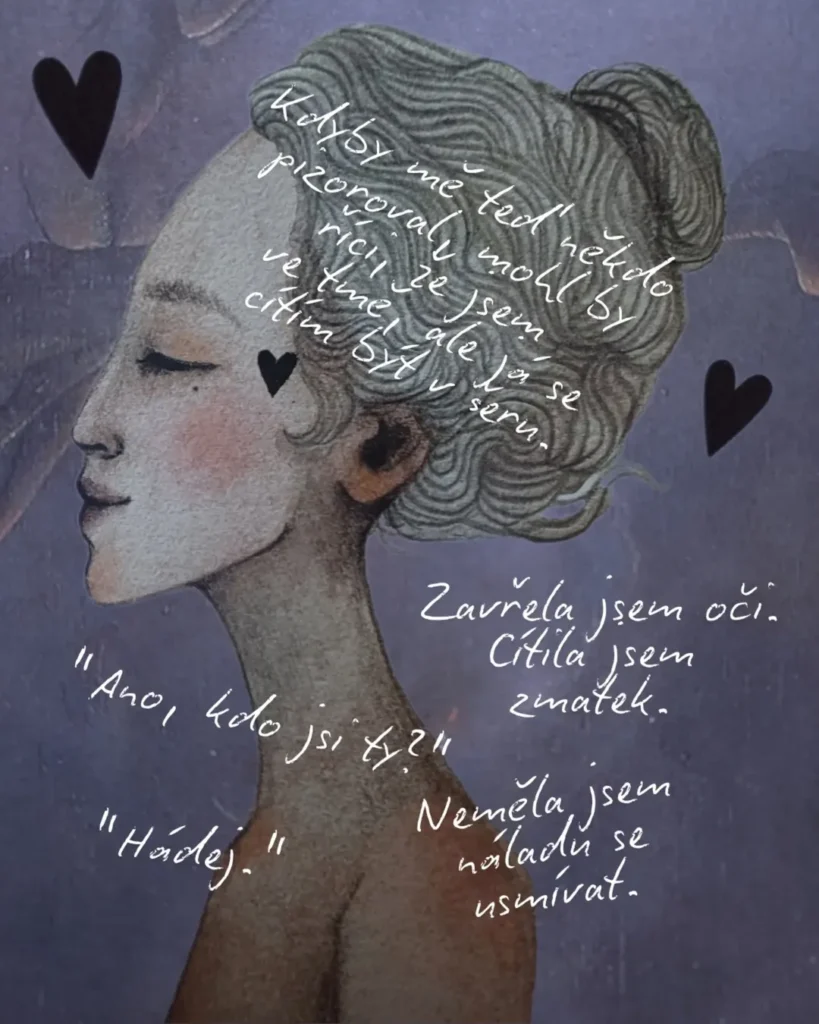 Kdyby mě teď někdo
pizoroval, mohl by
říci, že jsem
ve tmě, ale já se
cítím být v seru.
Zavřela jsem oči.
Cítila jsem
zmatek.
"Ano, kdo jsi ty?"
Neměla jsem
náladu se
usmívat.
"Hádej."